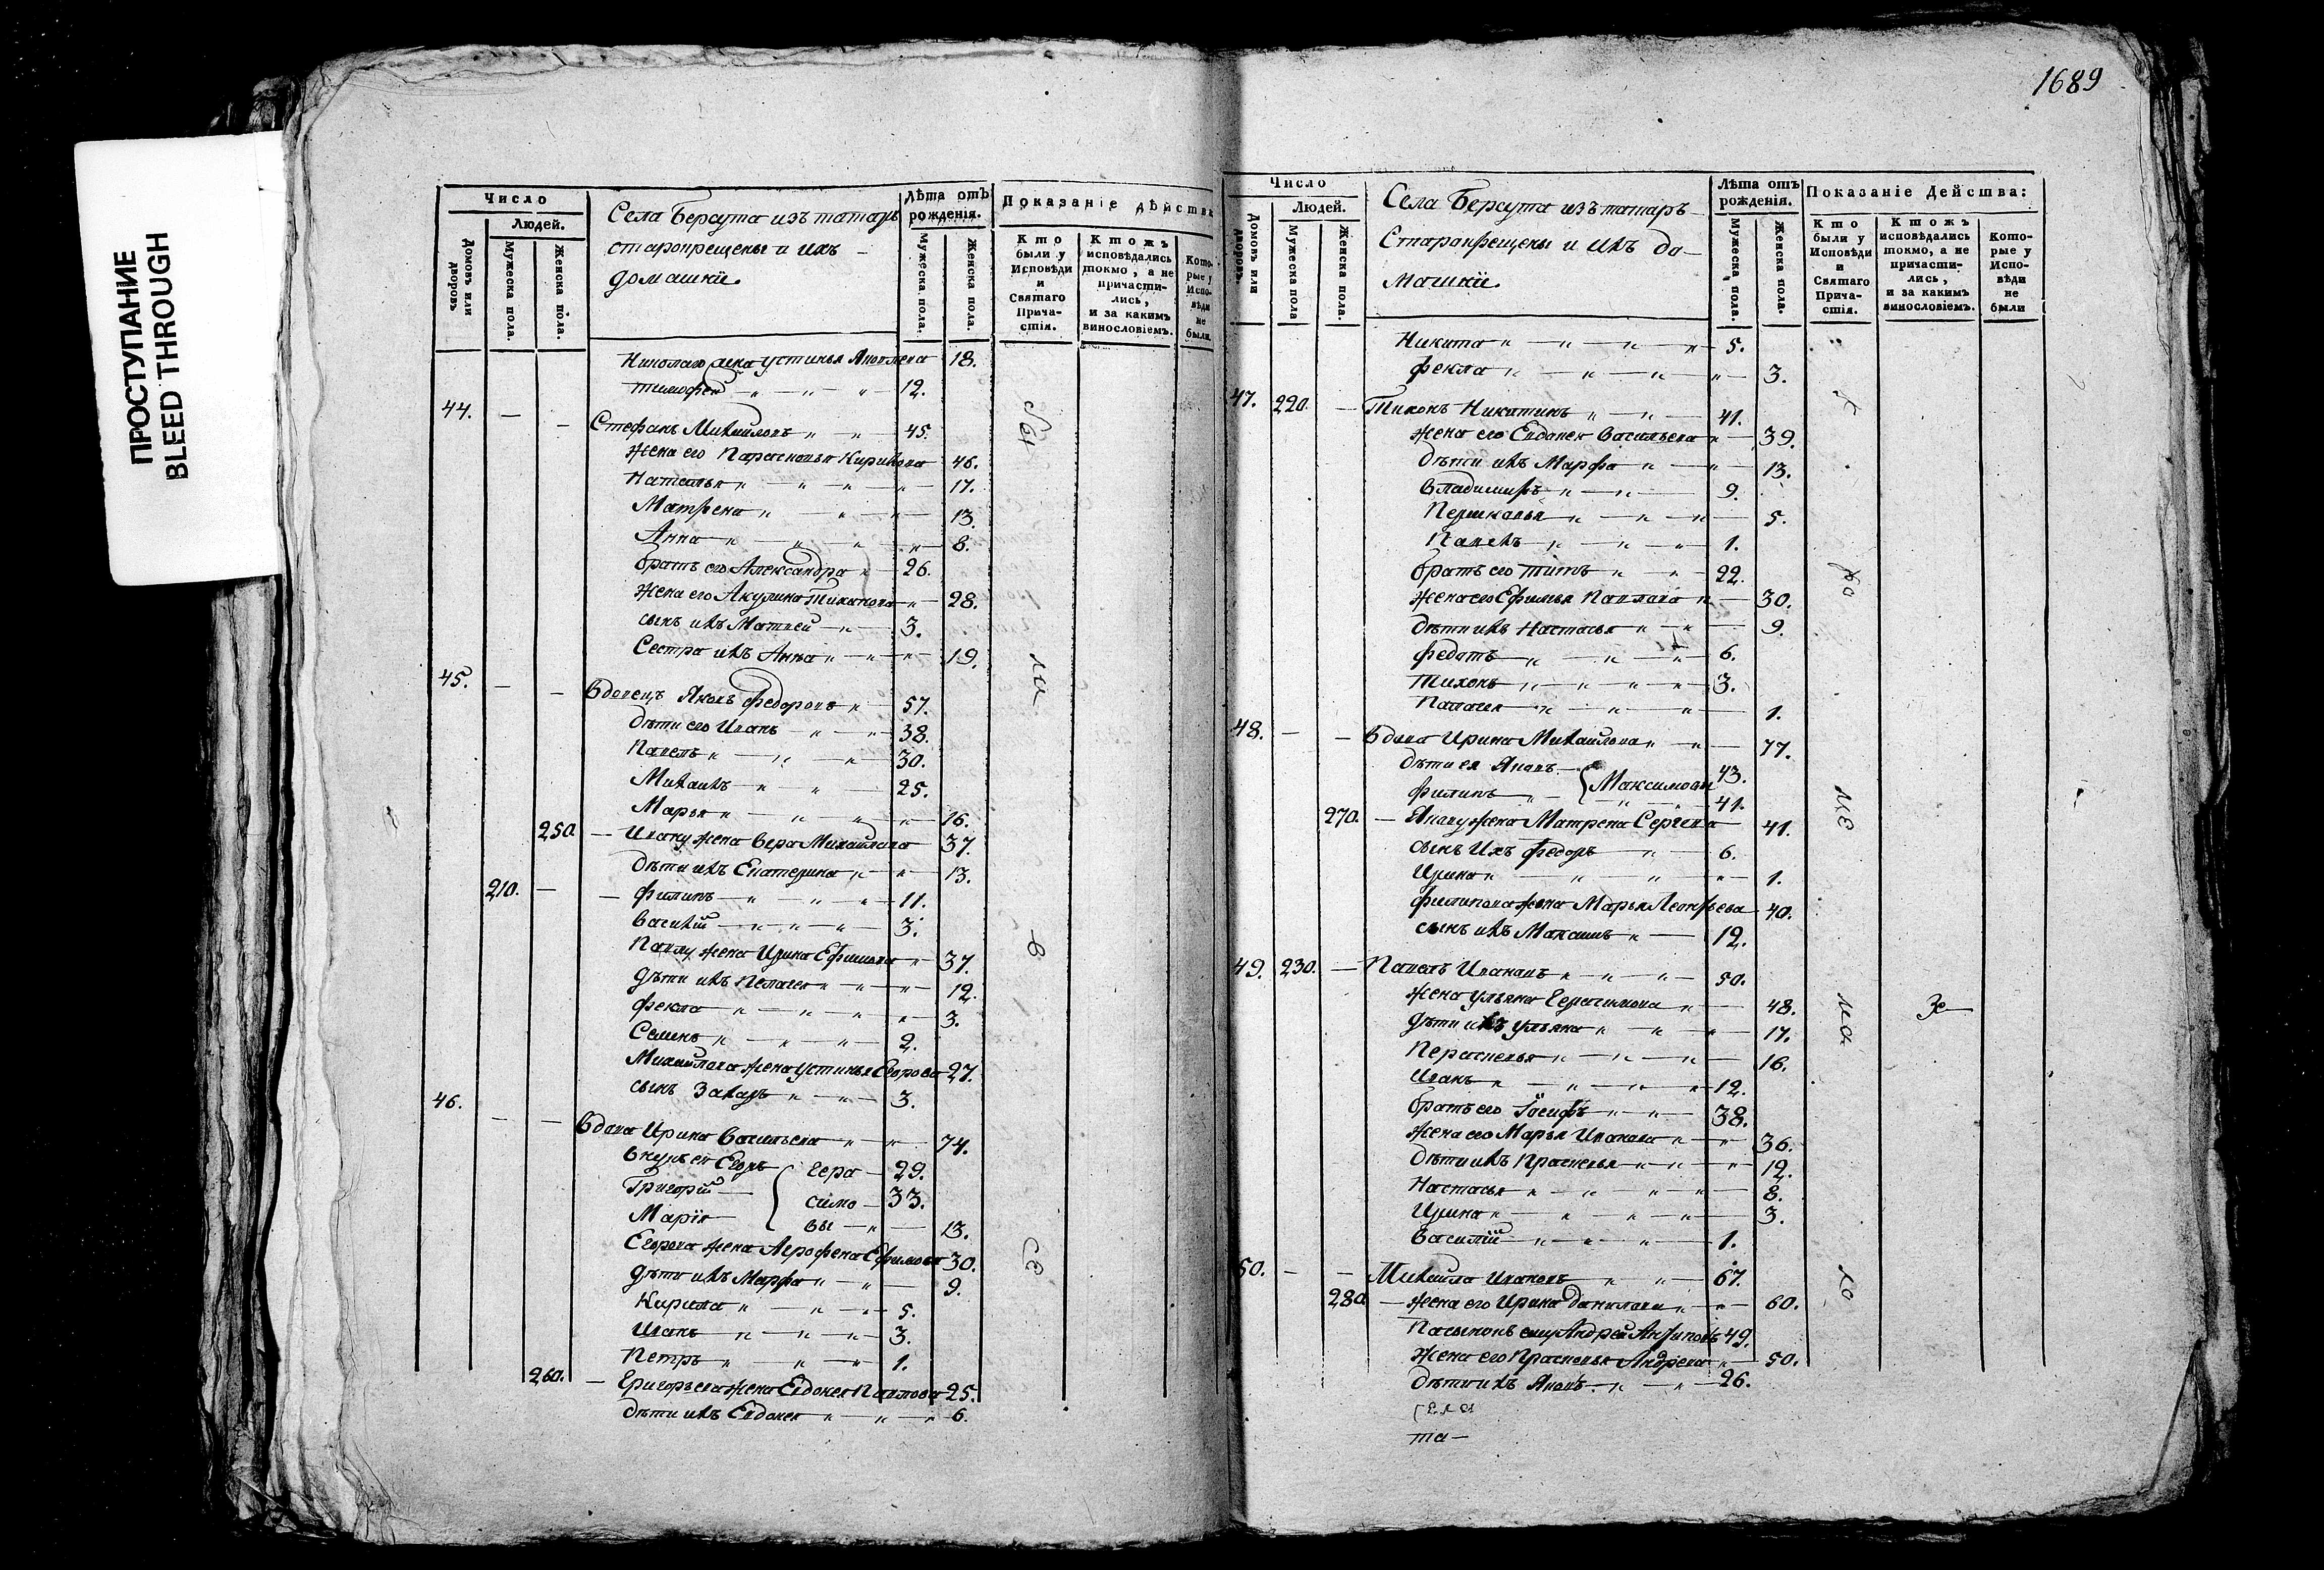 ПРОСТУПАНИЕ
BLEED THROUGH
1689
Число
Людей.
Домовъ или дворовъ
Мужеска пола.
Женска пола.
Села Берсута изъ татаръ
старокрещены и ихъ
домашнїи.
Лѣта отъ рожденія.
Мужеска пола.
Женска пола.
Показаніе дѣйства
Кто были у Исповѣди и Святаго Причастія.
Ктожъ исповѣдались токмо, а не причастились, и за какимъ винословіемъ.
Которые у Исповѣди не были.
Николаю жена Устинья Яковлева 18.
Тимофей 12.
44. Стефанъ Михайловъ 45.
Жена его Парасковья Кирилова 46.
Наталья 17.
Матрена 13.
Анна 8.
братъ его Александра 26.
Жена его Акулина 28.
сынъ ихъ Матвей 3.
Сестра ихъ Анна 19.
45. Вдовецъ Яковъ Федоровъ 57.
дѣти его Иванъ 38.
Павелъ 30.
Михаилъ 25.
Марья 16.
250 Ивану жена Вера Михайлова 37.
дѣти ихъ Екатерина 13.
210. Филипъ 11.
Василїй 3.
Павлу жена Ирина Ефимова 37.
дѣти ихъ Пелагея 12.
Фекла 3.
Семенъ 2.
Михайлова жена Устинья Егорова 27.
сынъ Захаръ 3.
46. Вдова Ирина Васильева 74.
Внукъ ея Егоръ Гера 29.
Григорїй симо 33.
Марїя вы 13.
Егорова жена Агрофена Ефимова 30.
дѣти ихъ Марфа 9.
Кирила 5.
Иванъ 3.
Петръ 1.
260. Григорьева жена Евдокея Павлова 25.
дѣти ихъ Евдокея 6.
Число
Людей.
Домовъ или дворовъ.
Мужеска пола
Женска пола.
Села Берсута изъ татаръ
Старокрещены и ихъ до-
машнїи.
Лѣта отъ рожденія.
Мужеска пола.
Женска пола.
Показаніе Действа:
Кто были у Исповѣди и Святаго Причастія.
Ктожъ исповѣдались токмо, а не причастились, и за какимъ винословіемъ.
Которые у Исповѣди не были
Никита 5.
Фекла 3.
47. 220. Тихонъ Никитинъ 41.
жена его Евдокея Васильева 39.
дѣти ихъ Марфа 13.
Владимиръ 9.
5.
Павелъ 1.
братъ его Титъ 22.
жена его Ефимья Павлова 30.
дѣти ихъ Настасья 9.
Федотъ 6.
Тихонъ 3.
Палагея 1.
48. Вдова Ирина Михайлова 77.
дѣти ея Яковъ 43.
Филипъ Максимовы 41.
270. Якову жена Матрена Сергеева 41.
сынъ ихъ Федоръ 6.
Ирина 1.
Филипова жена Марья Леонтьева 40.
сынъ ихъ Максимъ 12.
49. 230. Павелъ Ивановъ 50.
жена Ульяна Герасимова 48.
дѣти ихъ Ульяна 17.
16.
Иванъ 12.
братъ его Їосифъ 38.
жена его Марья Иванова 36.
дѣти ихъ Прасковья 12.
Настасья 8.
Ирина 3.
Василїй 1.
50. Михайла Ивановъ 67.
280. жена его Ирина Данилова 60.
Пасынокъ ему Андрей Антиповъ 49.
Жена его Прасковья Андреева 50.
дѣти ихъ Яковъ 26.
села
та-